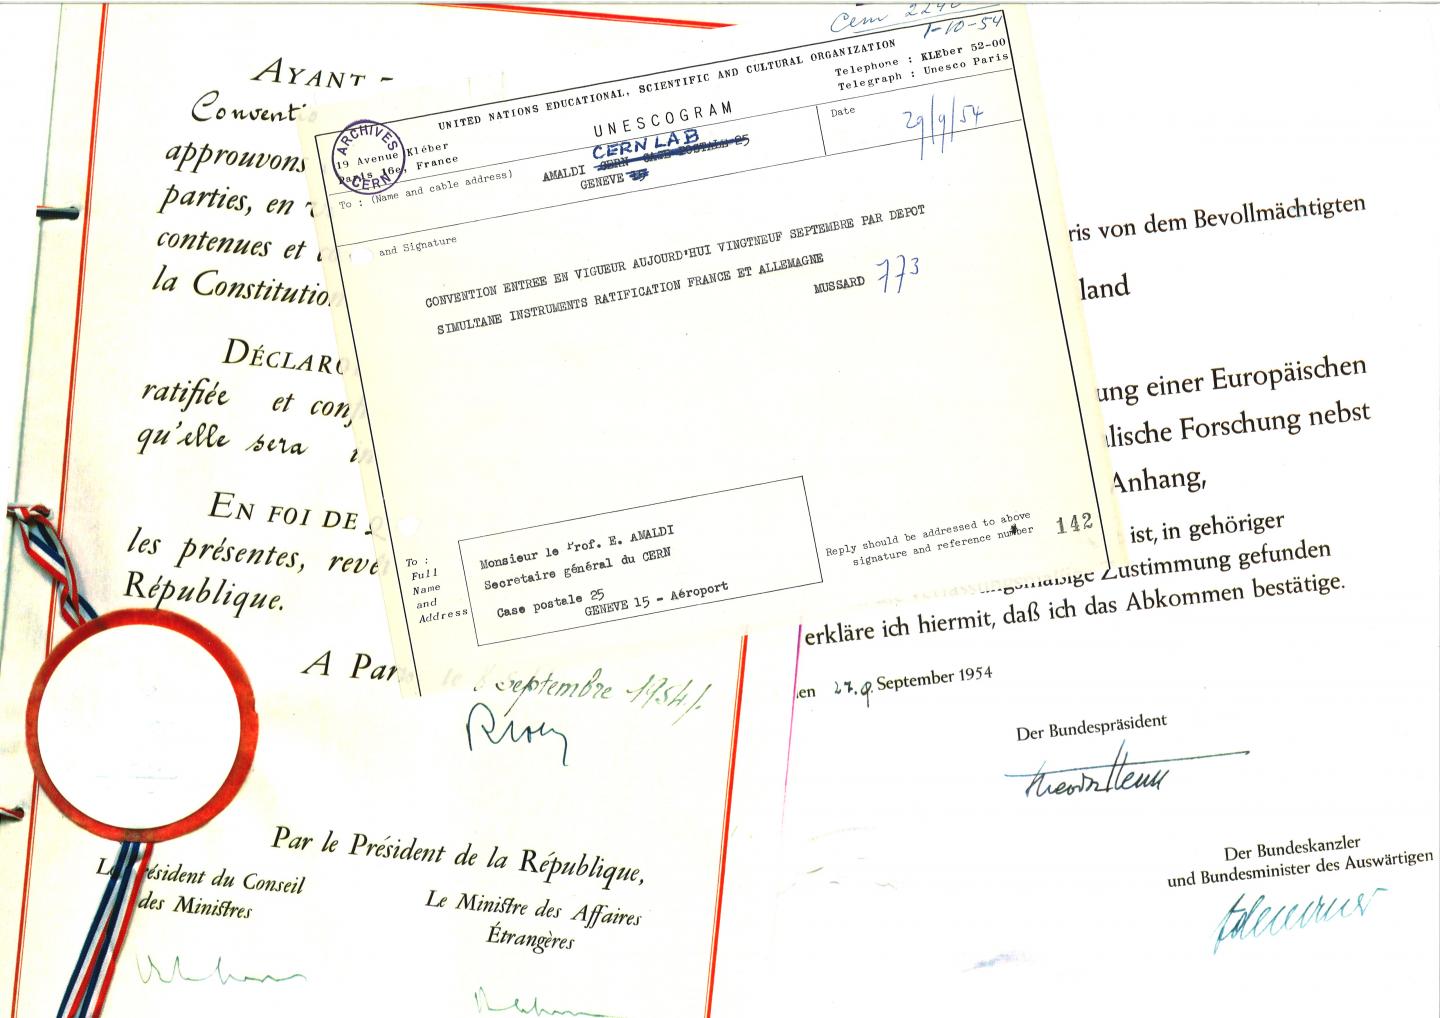 AYANT -
Conventi
approuvons
parties, en
contenues et
la Constitution
DÉCLARO
ratifiée et conf
qu'elle sera in
EN FOI DE Q
les présentes, revê
République.
A Par
Septembre 1954.
Par le Président de la République,
Le Président du Conseil
des Ministres
Le Ministre des Affaires
Étrangères
Cern 2240
1-10-54
UNITED NATIONS EDUCATIONAL, SCIENTIFIC AND CULTURAL ORGANIZATION
Telephone : KLEber 52-00
Telegraph : Unesco Paris
UNESCOGRAM
ARCHIVES
CERN
19 Avenue Kléber
Paris 16e, France
Date
29/9/54
To : (Name and cable address)
CERN LAB
AMALDI CERN CASE POSTALE 25
GENEVE 15
and Signature
CONVENTION ENTREE EN VIGUEUR AUJOURD'HUI VINGTNEUF SEPTEMBRE PAR DEPOT
SIMULTANE INSTRUMENTS RATIFICATION FRANCE ET ALLEMAGNE
MUSSARD 773
To :
Full
Name
and
Address
Monsieur le Prof. E. AMALDI
Secretaire général du CERN
Case postale 25
GENEVE 15 - Aéroport
Reply should be addressed to above
signature and reference number
142
ris von dem Bevollmächtigten
land
ung einer Europäischen
lische Forschung nebst
Anhang,
ist, in gehöriger
ungsmäßige Zustimmung gefunden
erkläre ich hiermit, daß ich das Abkommen bestätige.
en 27.9. September 1954
Der Bundespräsident
Theodor Heuss
Der Bundeskanzler
und Bundesminister des Auswärtigen
Adenauer